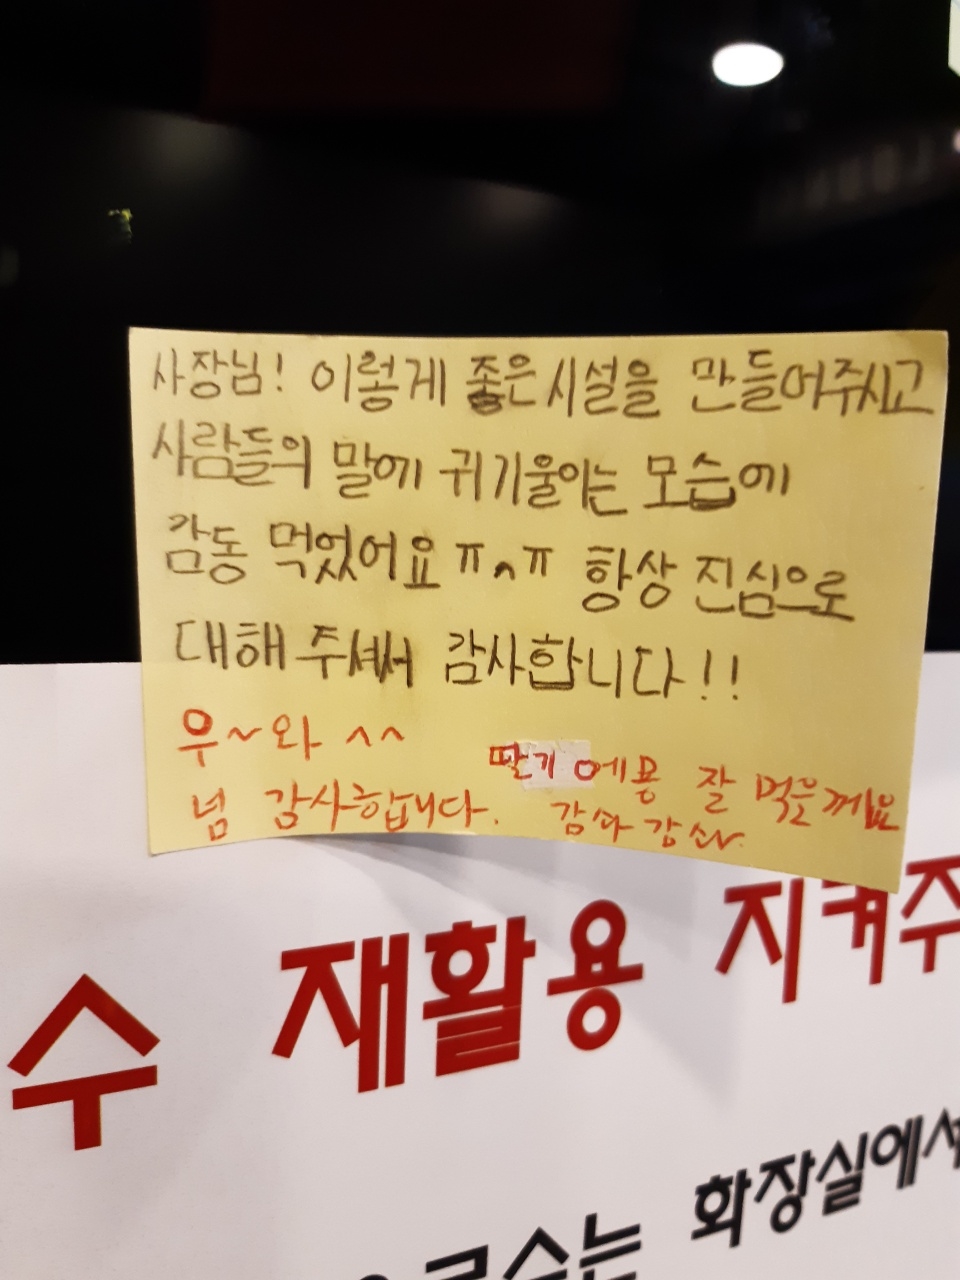 사장님! 이렇게 좋은 시설을 만들어주시고
사람들의 말에 귀기울이는 모습에
감동 먹었어요 ㅠㅅㅠ 항상 진심으로
대해 주셔서 감사합니다!!
우~와 ^^
넘 감사합니다.
딸기 에용 잘 먹을께요
감사 감사
수 재활용 지켜주
화장실에서